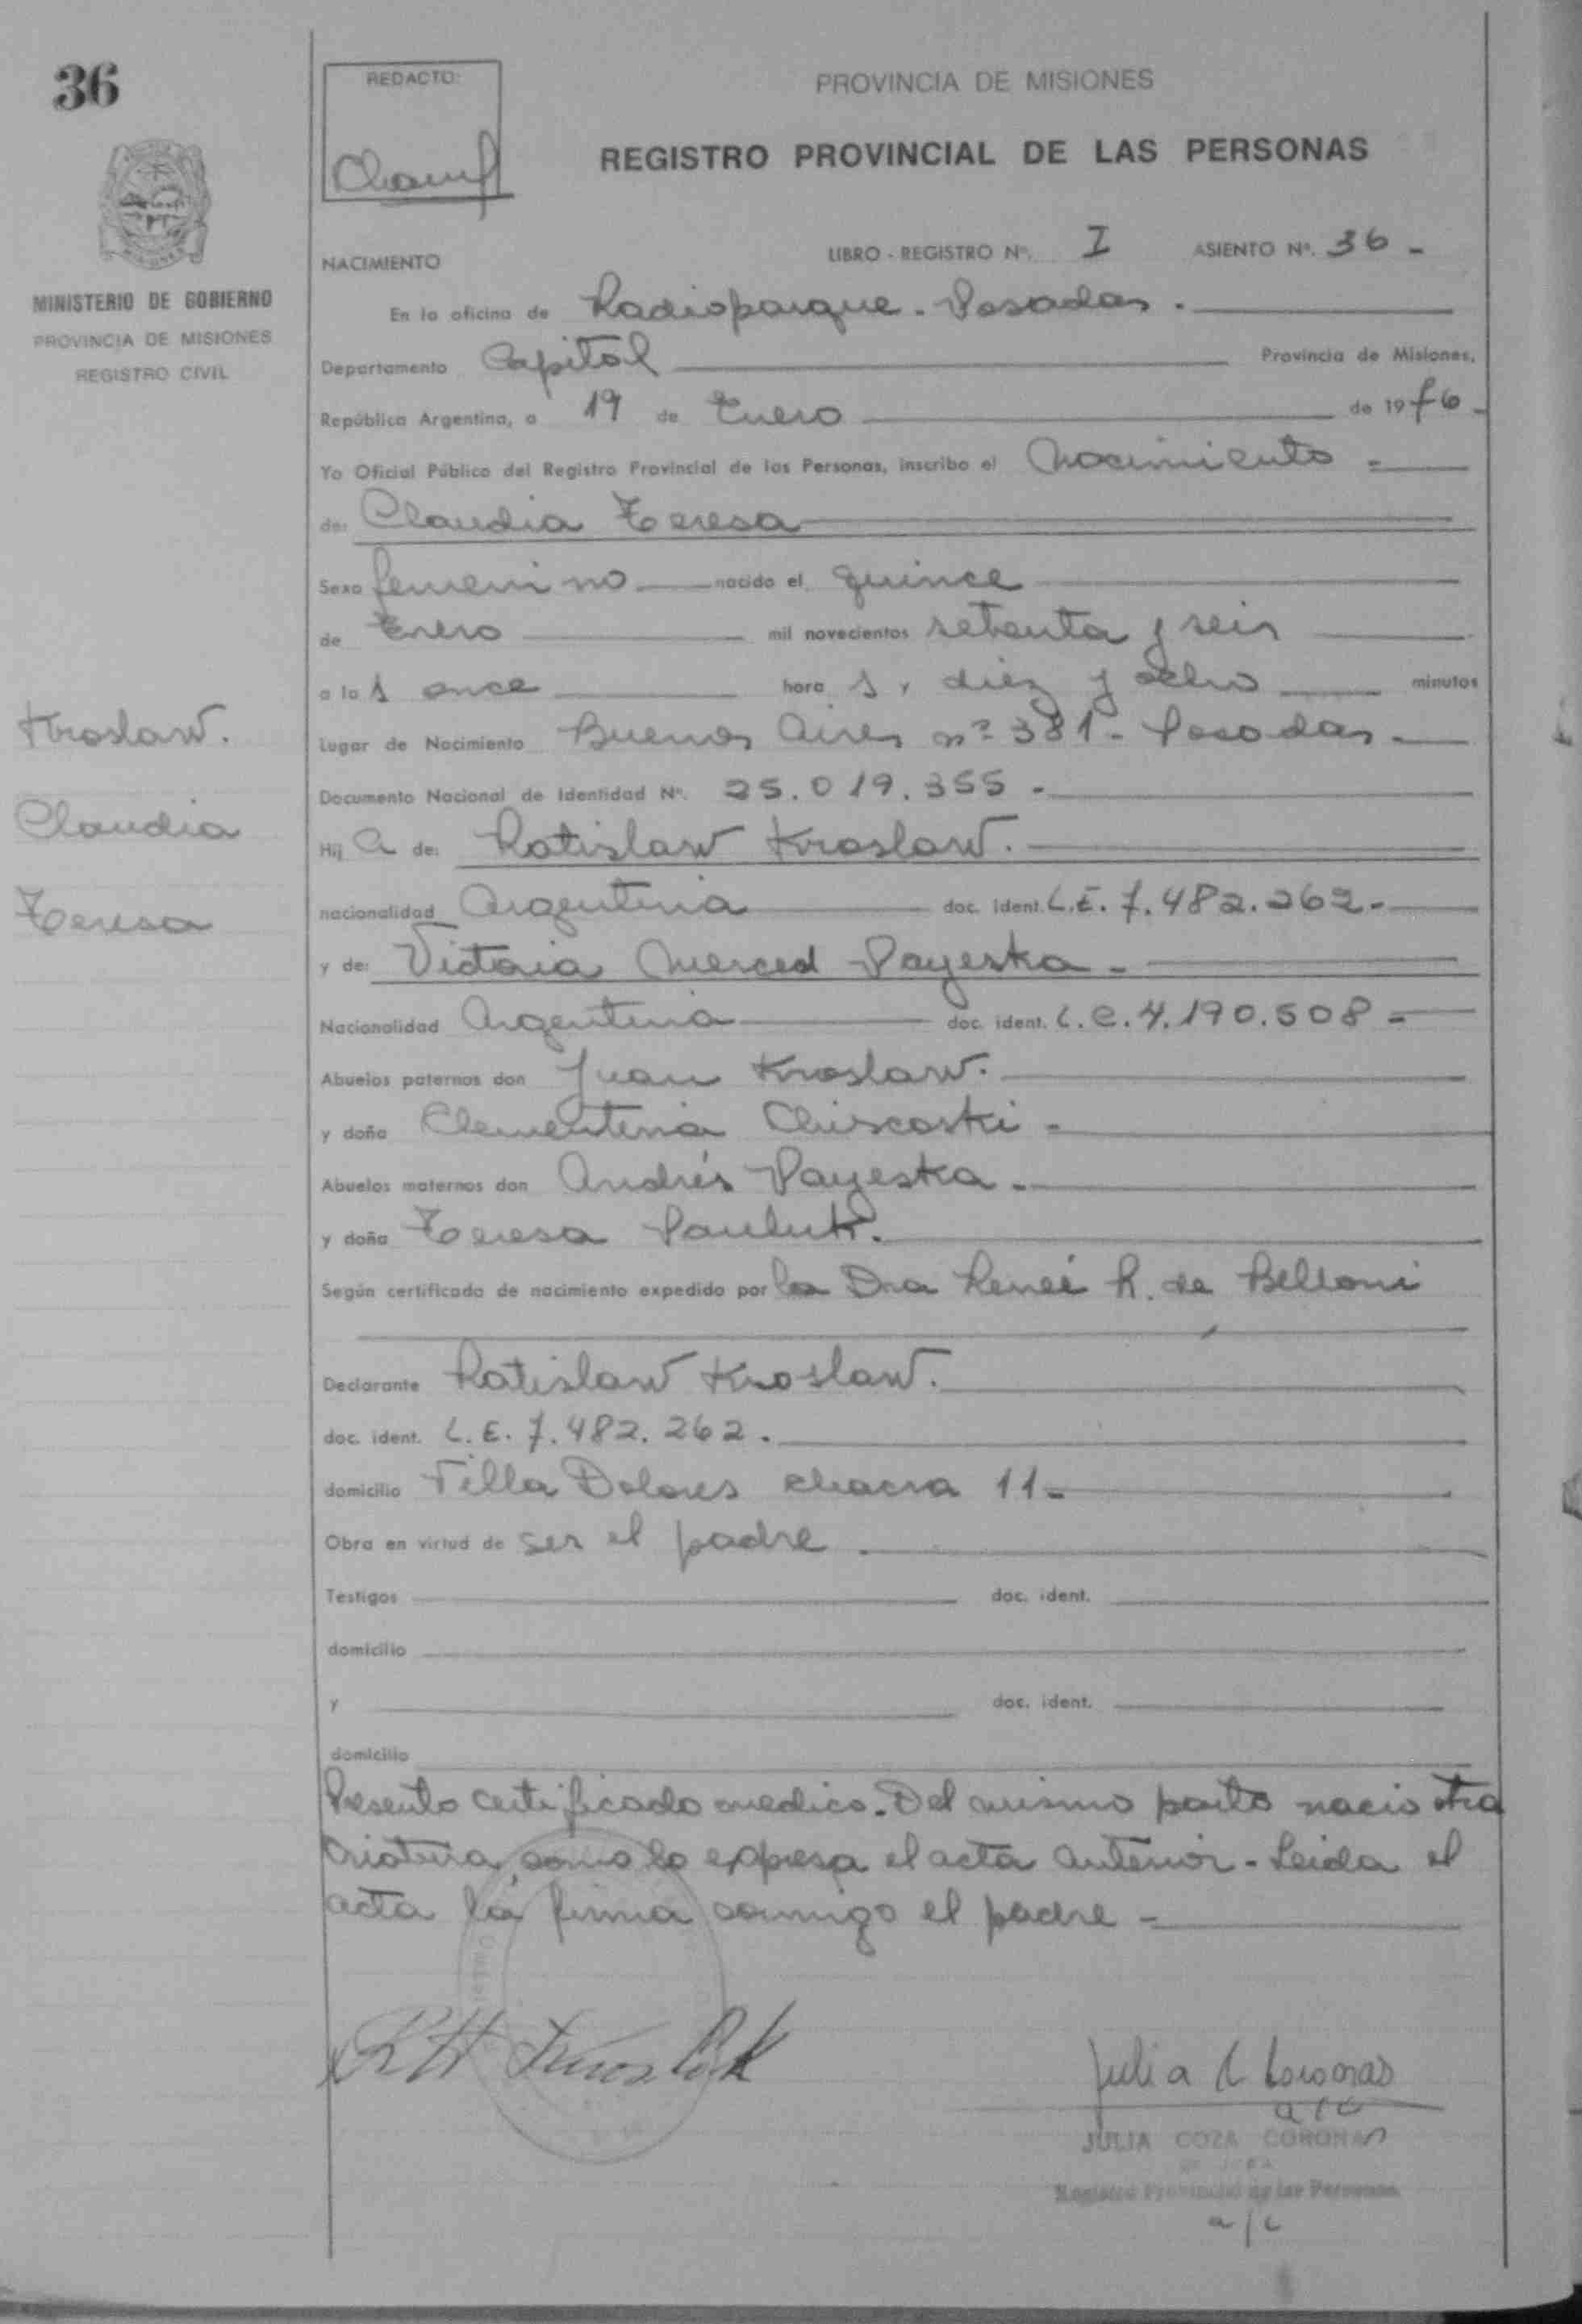 36
REDACTO:
PROVINCIA DE MISIONES
REGISTRO PROVINCIAL DE LAS PERSONAS
MINISTERIO DE GOBIERNO
PROVINCIA DE MISIONES
REGISTRO CIVIL
NACIMIENTO LIBRO - REGISTRO Nº. I ASIENTO Nº. 36 -
En la oficina de Radioparque - Posadas -
Departamento Capital Provincia de Misiones,
República Argentina, a 19 de Enero de 1976 -
Yo Oficial Público del Registro Provincial de las Personas, inscribo el Nacimiento -
de: Claudia Teresa
Sexo femenino nacido el quince
de Enero mil novecientos setenta y seis
a las once horas y diez y ocho minutos
Lugar de Nacimiento Buenos Aires nº 381 - Posadas -
Documento Nacional de Identidad Nº. 25.019.355 -
Hija de: Ratislaw Kroslaw.
nacionalidad Argentina doc. ident. L.E. 7.482.262 -
y de: Victoria Merced Payeska -
Nacionalidad Argentina doc. ident. L.C. 4.190.508 -
Abuelos paternos don Juan Kroslaw.
y doña Clementina Chiscoski -
Abuelos maternos don Andrés Payeska -
y doña Teresa Pauluk.
Según certificado de nacimiento expedido por la Dra Reneé R. de Belloni
Declarante Ratislaw Kroslaw.
doc. ident. L.E. 7.482.262.
domicilio Villa Dolores chacra 11 -
Obra en virtud de ser el padre.
Testigos doc. ident.
domicilio
y doc. ident.
domicilio
Presento certificado medico. Del mismo parto nacio otra
criatura, como lo expresa el acta anterior - Leida el
acta la firma conmigo el padre -
Kroslaw.
Claudia
Teresa
Julia C Coronas
a/c
JULIA COZA CORONAS
Registro Provincial de las Personas
a/c